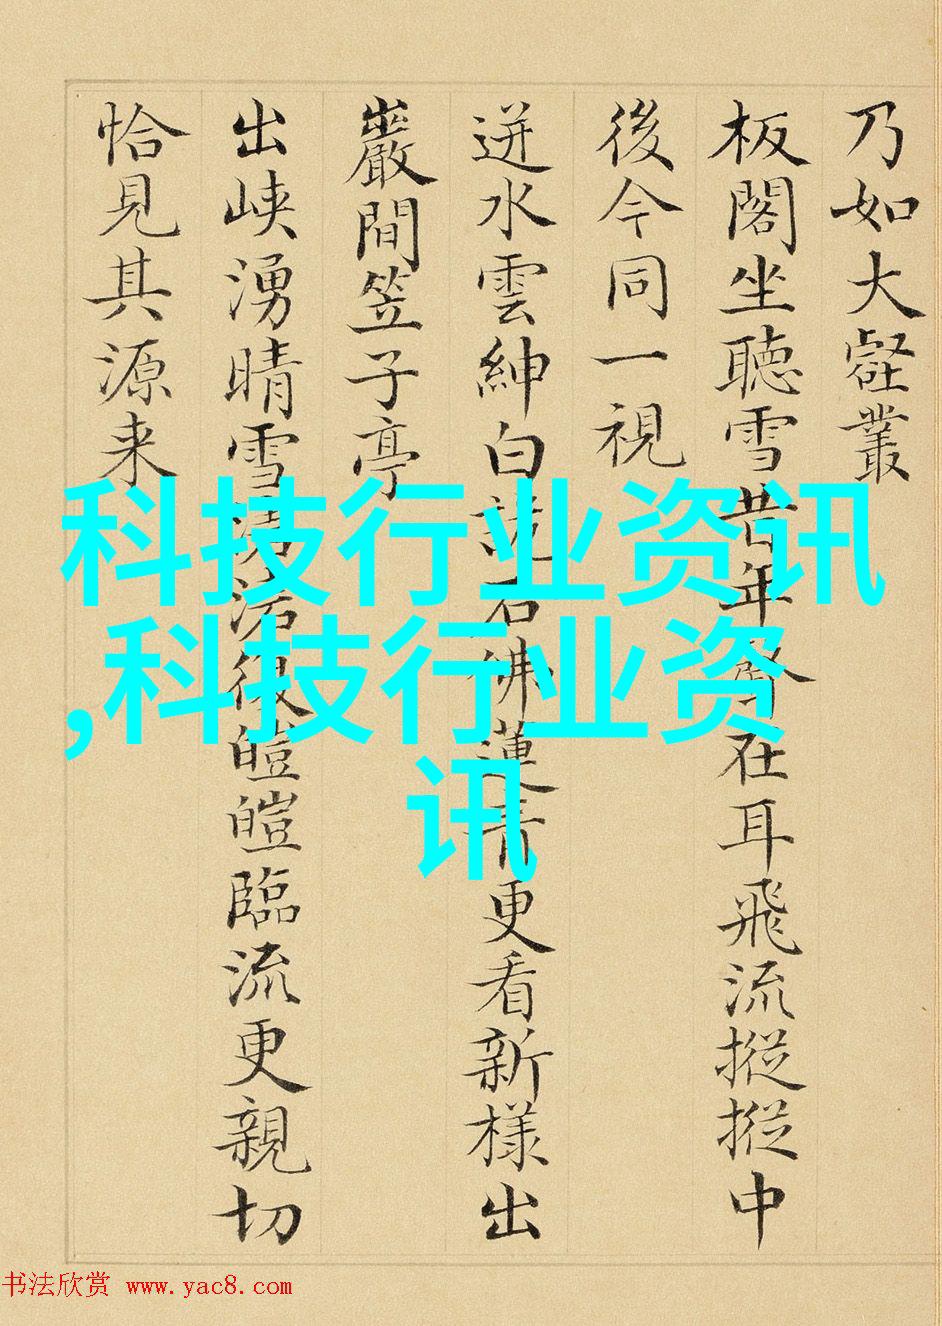 乃如大壑叢
板閣坐聽雪昔年聲在耳飛流摐摐中
後今同一視
迸水雲紳白說石佛蓮青更看新樣出
巖間笠子亭
出峽湧晴雪
皚皚臨流更親切
恰見其源来
科技行业资讯
,科技行业资
讯
书法欣赏 www.yac8.com